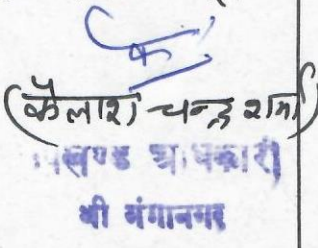 (कैलाश चन्द्र शर्मा)
खण्ड अधिकारी
श्री गंगानगर